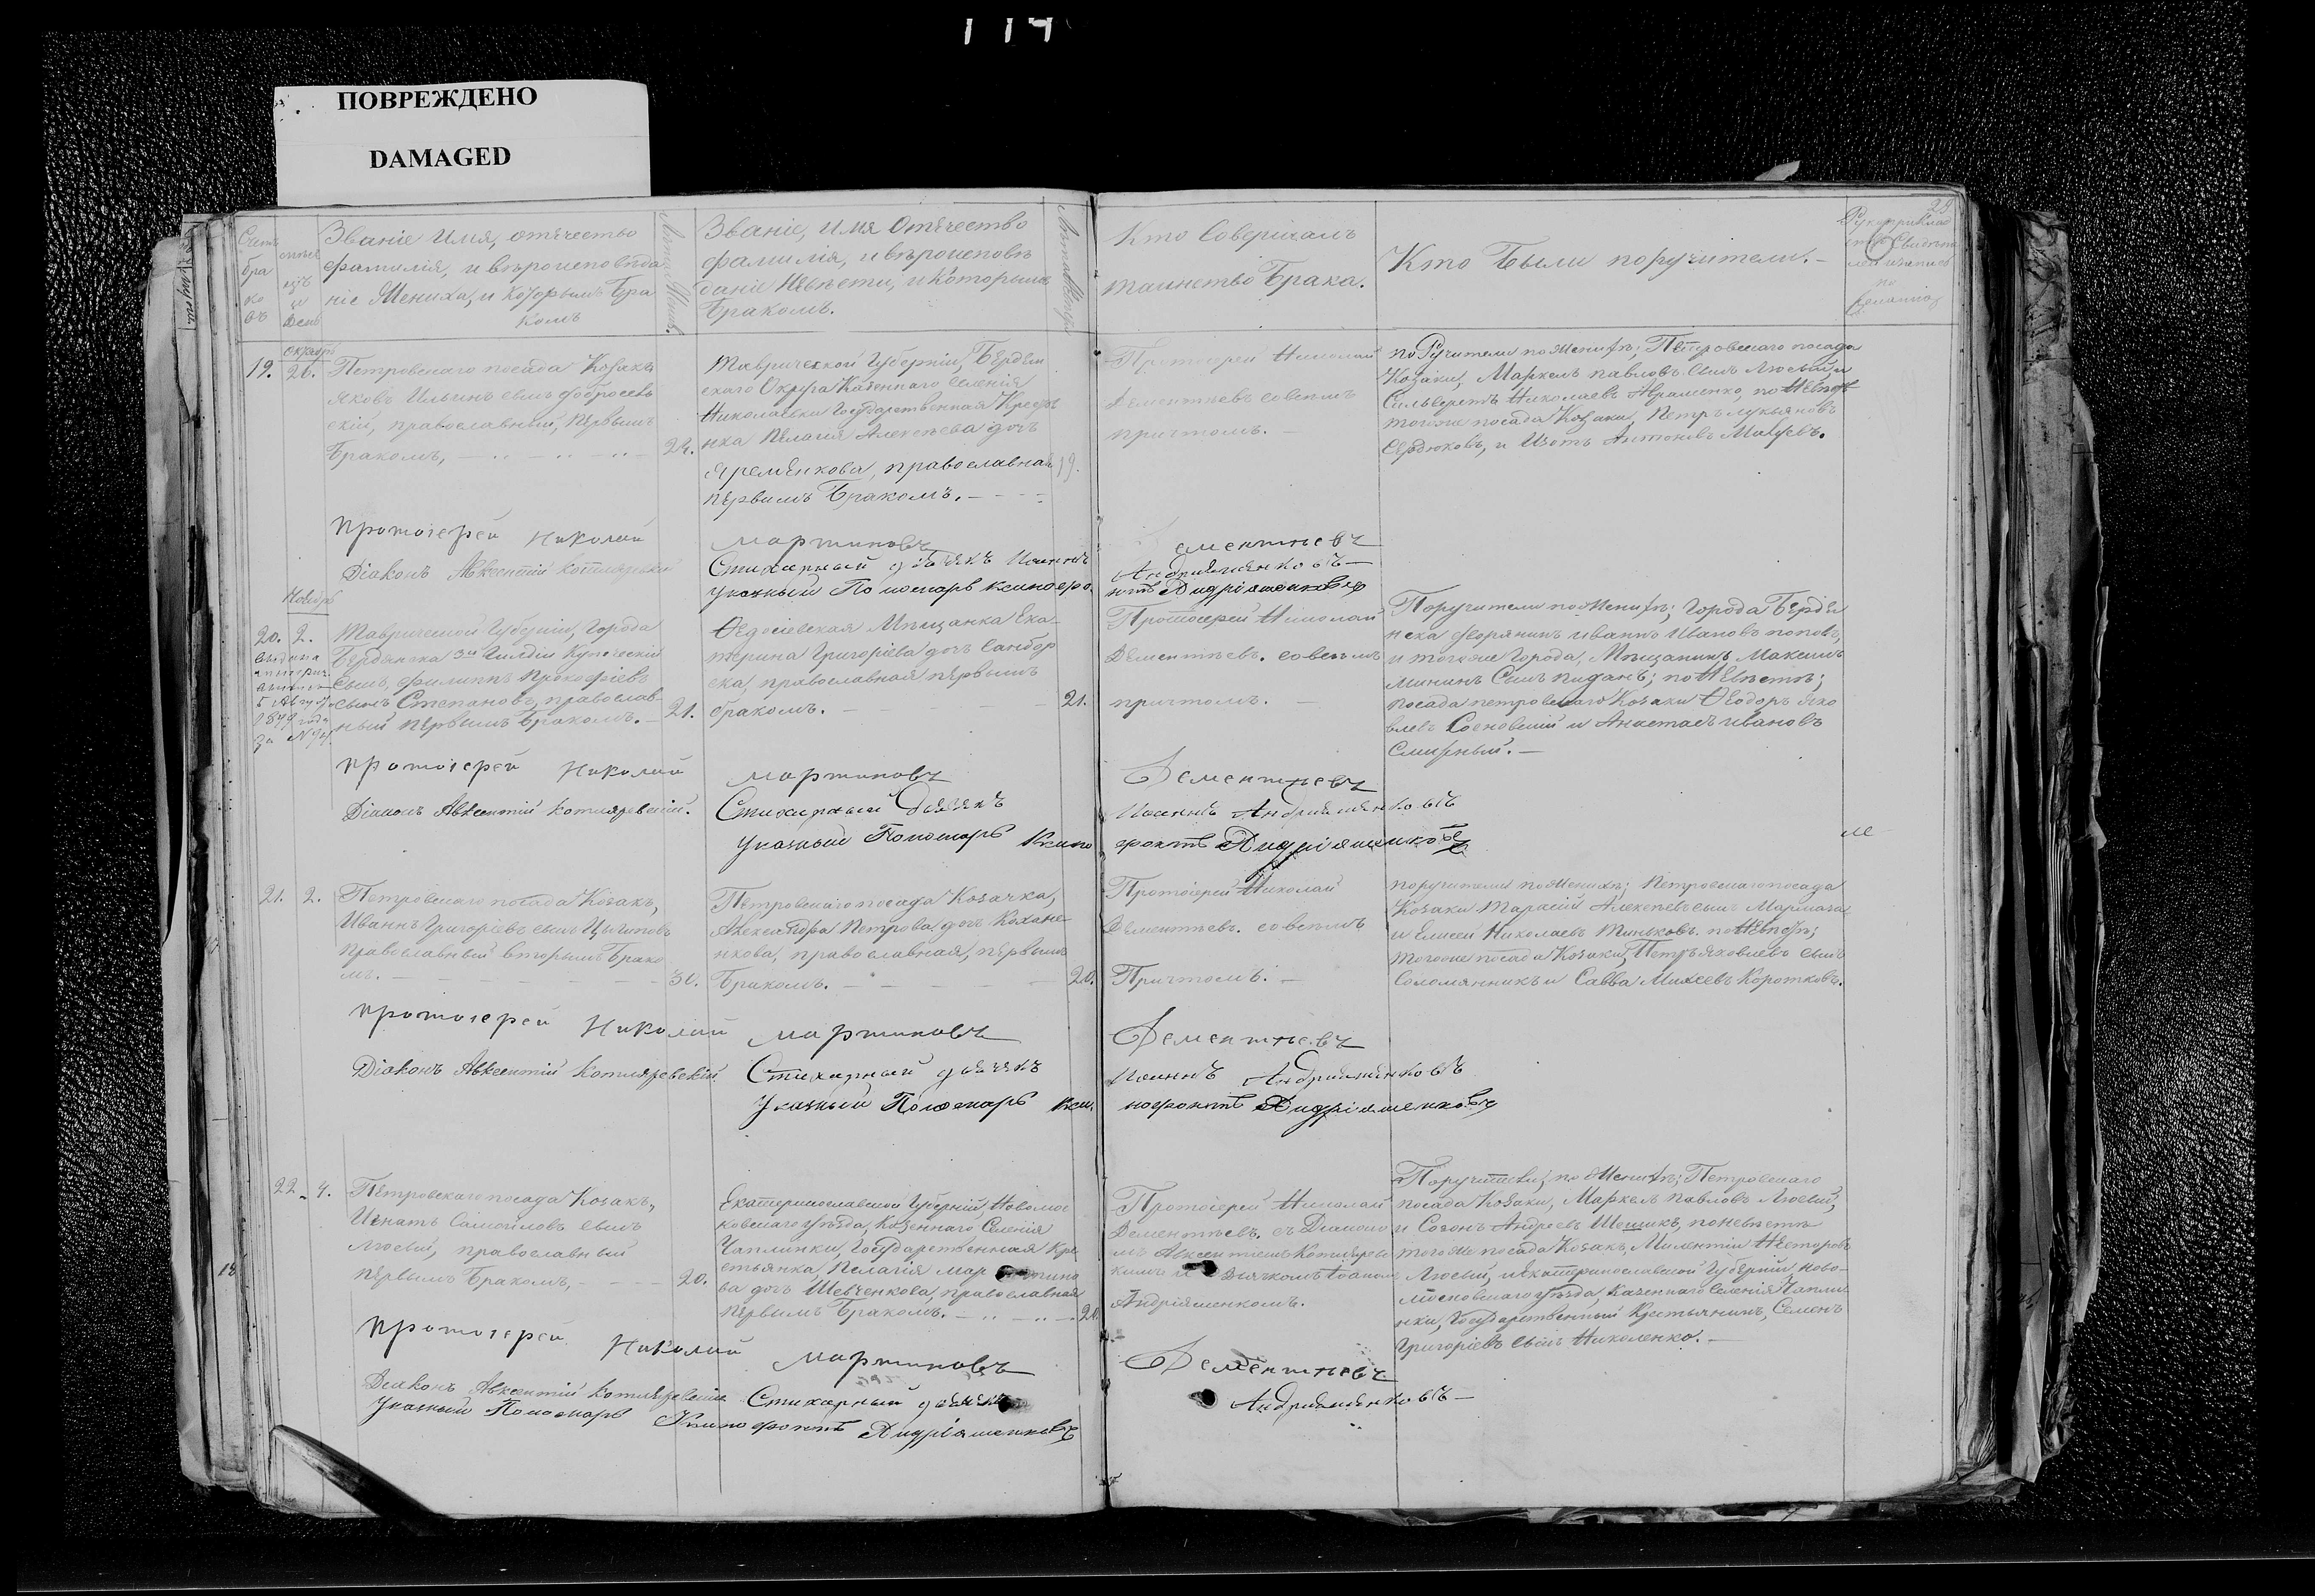 114
ПОВРЕЖДЕНО
DAMAGED
28
Званіе Имя, отечество
фамилія, и вѣроисповѣда
ніе Жениха, и которымъ бра
комъ
Званіе, имя Отечество
фамилія, и вѣроисповѣ
даніе Невѣсты, и которымъ
Бракомъ.
Кто Совершалъ
таинство Брака.
Кто Были поручители.
19.
Октябрь
26.
Петровскаго посада Козакъ
Яковъ Ильинъ сынъ Добросель
скій, православный, первымъ
Бракомъ,
24.
Таврической Губерніи, Бердян
скаго Округа Казеннаго Селенія
Николаевки Государственная Кресть
нка Пелагія Алексѣева дочь
Яременкова, православная
первымъ Бракомъ.
19.
Протоіерей Николай
Дементьевъ совсѣмъ
причтомъ.
поручители по Женихѣ; Петровскаго посада
Козаки, Маркелъ павловъ сынъ Люсый, и
Сильверстъ Николаевъ Авраменко, по Невѣстѣ
тогоже посада Козаки, Петръ лукьяновъ
Сердюковъ, и Изотъ Антоновъ Мацуевъ.
Протоіерей Николай Мартиновъ Дементьевъ
Діаконъ Авксентій Котляревскій
Стихарный дьячекъ Иоаннъ Андрияшенковъ
указный Пономарь Ксенофонтъ Андріяшенковъ
Ноябрь
20. 2.
Таврической Губерніи, Города
Бердянска 3й Гилдіи Купеческій
сынъ, Филиппъ Прокофіевъ
сынъ Степановъ, православ-
ный первымъ Бракомъ.
21.
5 Августа
187 года
за №
Ѳедосіевская Мѣщанка Ека-
терина Григоріева дочь Самбор
ска, православная первымъ
бракомъ.
21.
Протоіерей Николай
Дементьевъ. совсѣмъ
причтомъ.
Поручители по Женихѣ; Города Бердя
нска дворянинъ иванъ Ивановъ поповъ,
и тогоже Города, Мѣщанинъ Максимъ
Мининъ Сынъ пиданъ; по Невѣстѣ;
посада петровскаго Козаки Ѳеодоръ Яко
влевъ Сосновскій и Анастасъ ивановъ
Смирный.
Протоіерей Николай Мартиновъ Дементьевъ
Діаконъ Авксентій Котляревскій.
Стихарный Дьячекъ Иоаннъ Андрияшенковъ
указный Пономарь Ксено фонтъ Андріяшенковъ
21. 2.
Петровскаго посада Козакъ,
Иванъ Григоріевъ сынъ Цыгановъ
православный вторымъ Брако
мъ.
30.
Петровскаго посада Козачка,
Александра Петрова дочь Кохане-
нкова, православная, первымъ
Бракомъ.
20.
Протоіерей Николай
Дементьевъ. совсѣмъ
Причтомъ.
поручители по Женихѣ; Петровскаго посада
Козаки Тарасій Алексѣевъ сынъ Мармаза
и Елисей Николаевъ Тиньковъ. по Невѣстѣ;
тогоже посада Козаки, Петръ яковлевъ сынъ
Соломянникъ и Савва Михеевъ Коротковъ.
Протоіерей Николай Мартиновъ Дементьевъ
Діаконъ Авксентій Котляревскій.
Стихарный дьячекъ Иоаннъ Андрияшенковъ
Указный Пономарь Ксе нофонтъ Андріяшенковъ
22. 4.
Петровскаго посада Козакъ,
Игнатъ Самойловъ сынъ
Люсый, православный
первымъ Бракомъ,
20.
Екатеринославской Губерніи, Новомос
ковскаго уѣзда, Казеннаго Селенія
Чаплинки, Государственная Кре
стьянка, Пелагія Мар
ва дочь Шевченкова, православная
первымъ Бракомъ.
20.
Протоіерей Николай
Дементьевъ. съ Діаконо
мъ Авксентіемъ Котлярев
кимъ и Дьячкомъ Іоаном
Андріяшенкомъ.
Поручители; по Женихѣ; Петровскаго
посада Козаки, Маркелъ Павловъ Люсый,
и Созонъ Андреевъ Шешикъ, поневѣстѣ
тогоже посада Козакъ, Милентій Несторовъ
Люсый, и Екатеринославской Губерніи Ново-
московскаго уѣзда, Казеннаго Селенія Чапли
нки, Государственный Крестьянинъ, Семенъ
Григоріевъ сынъ Николенко.
Протоіерей Николай Мартиновъ Дементьевъ
Діаконъ Авксентій Котляревскій Стихарный дьячекъ Андрияшенковъ
Указный Пономарь Ксенофонтъ Андріяшенковъ